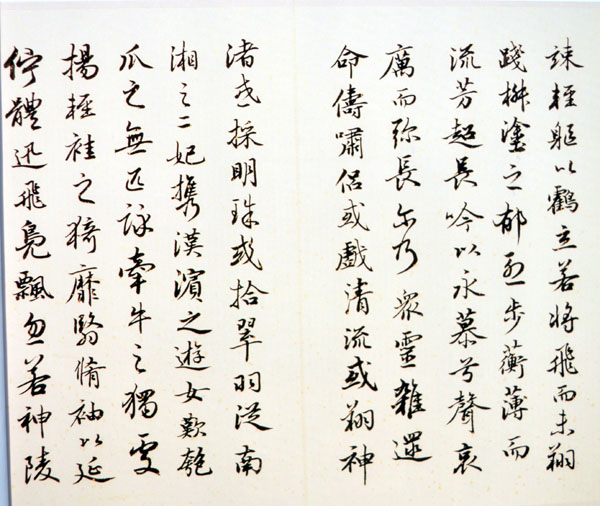 竦輕軀以鶴立若將飛而未翔
踐椒塗之郁烈步蘅薄而
流芳超長吟以永慕兮聲哀
厲而弥長尔乃眾靈雜遝
命儔嘯侶或戲清流或翔神
渚或採明珠或拾翠羽從南
湘之二妃携漢濱之遊女歎匏
瓜之無匹詠牽牛之獨處
揚輕袿之猗靡翳脩袖以延
佇體迅飛鳧飄忽若神陵